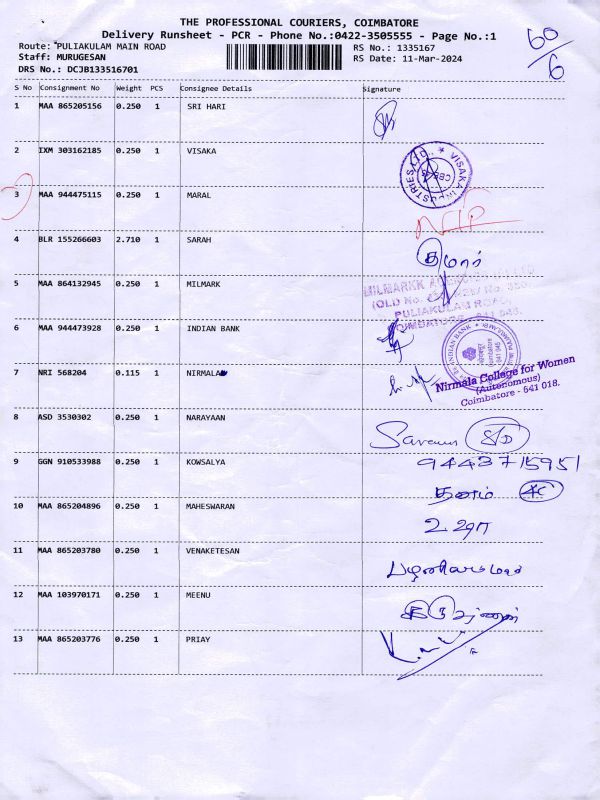 THE PROFESSIONAL COURIERS, COIMBATORE
Delivery Runsheet - PCR - Phone No.:0422-3505555 - Page No.:1
60/6
Route: PULIAKULAM MAIN ROAD
RS No.: 1335167
Staff: MURUGESAN
RS Date: 11-Mar-2024
DRS No.: DCJB133516701
S No Consignment No Weight PCS Consignee Details Signature
1 MAA 865205156 0.250 1 SRI HARI
2 IXM 303162185 0.250 1 VISAKA
3 MAA 944475115 0.250 1 MARAL
4 BLR 155266603 2.710 1 SARAH
குமார்
5 MAA 864132945 0.250 1 MILMARK
PULIAKULAM ROAD,
COIMBATORE - 641 045.
6 MAA 944473928 0.250 1 INDIAN BANK
7 NRI 568204 0.115 1 NIRMALA
Nirmala College for Women
(Autonomous)
Coimbatore - 641 018.
8 ASD 3530302 0.250 1 NARAYAAN
9443715951
9 GGN 910533988 0.250 1 KOWSALYA
10 MAA 865204896 0.250 1 MAHESWARAN
11 MAA 865203780 0.250 1 VENAKETESAN
12 MAA 103970171 0.250 1 MEENU
13 MAA 865203776 0.250 1 PRIAY